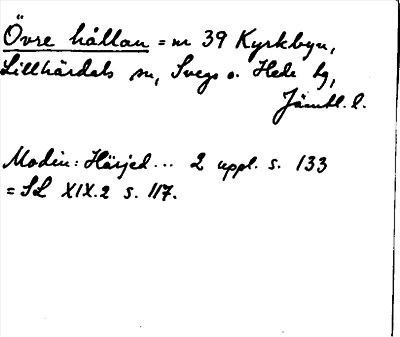 Övre hållan = nr 39 Kyrkbyn,
Lillhärdals sn, Svegs o. Hede tg,
Jämtl. l.
Modin: Härjed... 2 uppl. s. 133
= SL XIX.2 s. 117.